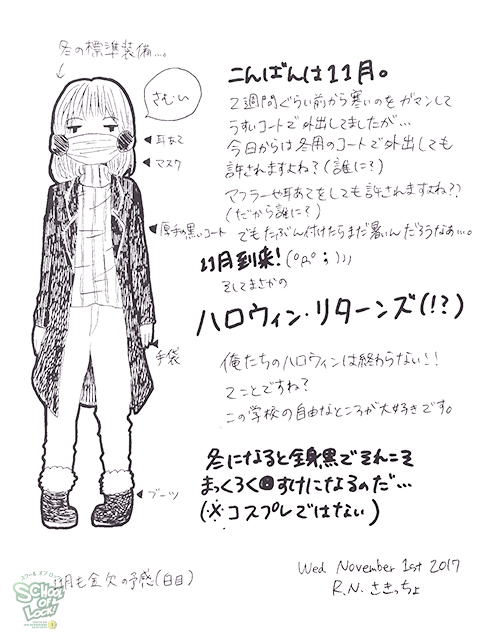 冬の標準装備…。
さむい
耳あて
マスク
厚手の黒いコート
手袋
ブーツ
こんばんは11月。
2週間ぐらい前から寒いのをガマンして
うすいコートで外出してましたが…
今日からは冬用のコートで外出しても
許されますよね?(誰に?)
マフラーや耳あてをしても許されますよね??
(だから誰に?)
でもたぶん付けたらまだ暑いんだろうなぁ…。
11月到来!
そしてまさかの
ハロウィン・リターンズ(!?)
俺たちのハロウィンは終わらない!!
てことですね?
この学校の自由なところが大好きです。
冬になると全身黒でそれこそ
まっくろくろすけになるのだ…
(※コスプレではない)
Wed November 1st 2017
R.N. さきっちょ
スクール オブ ロック!
SCHOOL OF LOCK!
月も金欠の予感(白目)